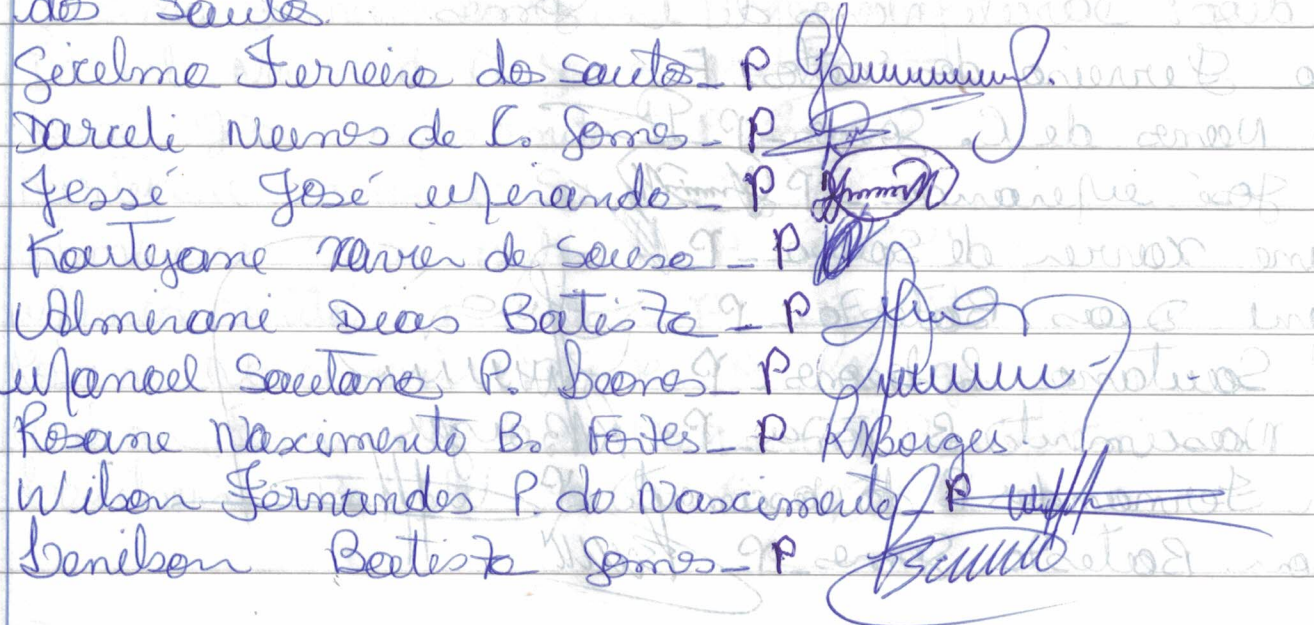 dos Santos.
Gicelmo Ferreira dos Santos - P
Darceli Nunes de C. Gomes - P
Jessé José Miranda - P
Kautejane Xavier de Sousa - P
Almirani Dias Batista - P
Manoel Santana P. Soares - P
Rosane Nascimento B. Fortes - P RNBorges
Wilson Fernandes P. do Nascimento P
Denilson Batista Gomes - P